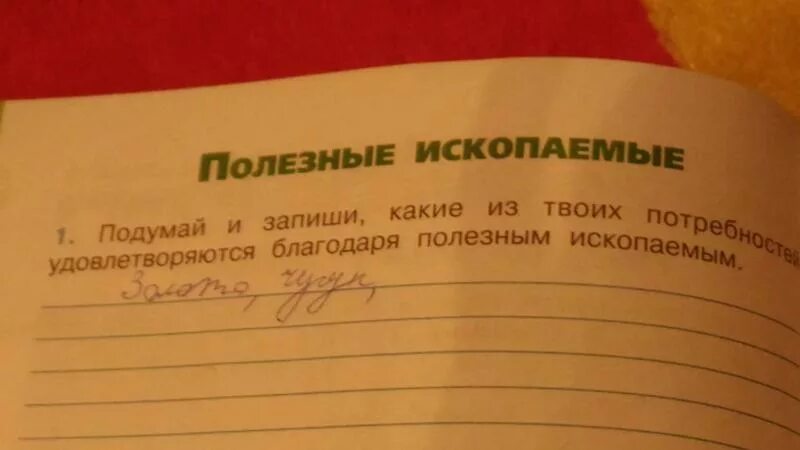 ПОЛЕЗНЫЕ ИСКОПАЕМЫЕ
1. Подумай и запиши, какие из твоих потребностей
удовлетворяются благодаря полезным ископаемым.
Золото, чугун,